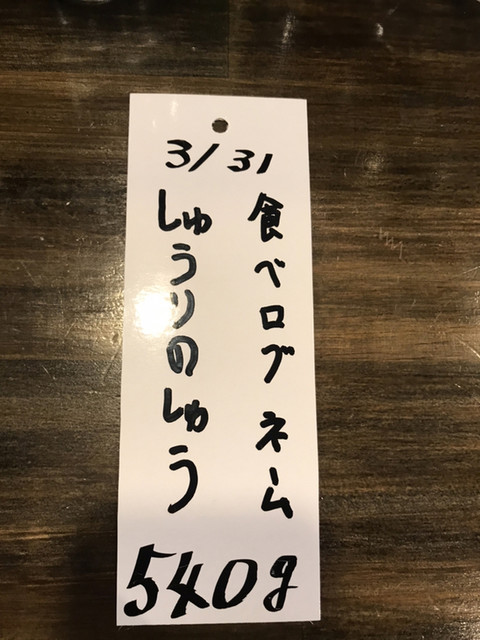 3/31
食べログネーム
しゅうりのしゅう
540g